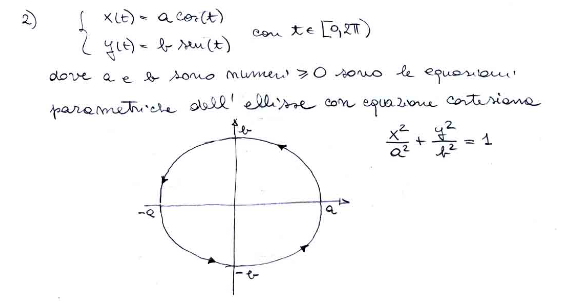 2) { x(t) = a cos(t)
{ y(t) = b sen(t) con t ∈ [0,2π)
dove a e b sono numeri ⩾ 0 sono le equazioni
parametriche dell' ellisse con equazione cartesiana
x²/a² + y²/b² = 1
b
-a
a
-b